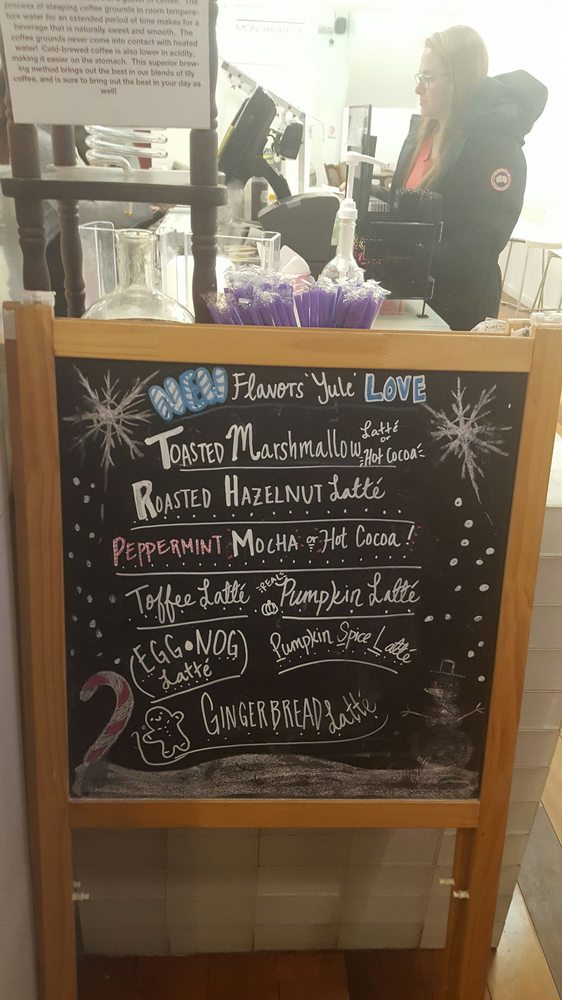 process of steeping coffee grounds in room tempera-
ture water for an extended period of time makes for a
beverage that is naturally sweet and smooth. The
coffee grounds never come into contact with heated
water! Cold-brewed coffee is also lower in acidity,
making it easier on the stomach. This superior brew-
ing method brings out the best in our blends of illy
coffee, and is sure to bring out the best in your day as
well!
MONOARABICA
NEW Flavors 'Yule' LOVE
TOASTED MARSHMALLOW Latté or Hot Cocoa
ROASTED HAZELNUT Latté
PEPPERMINT MOCHA or Hot Cocoa!
Toffee Latté
"REAL" Pumpkin Latté
EGG•NOG Latté
Pumpkin Spice Latté
GINGERBREAD Latté